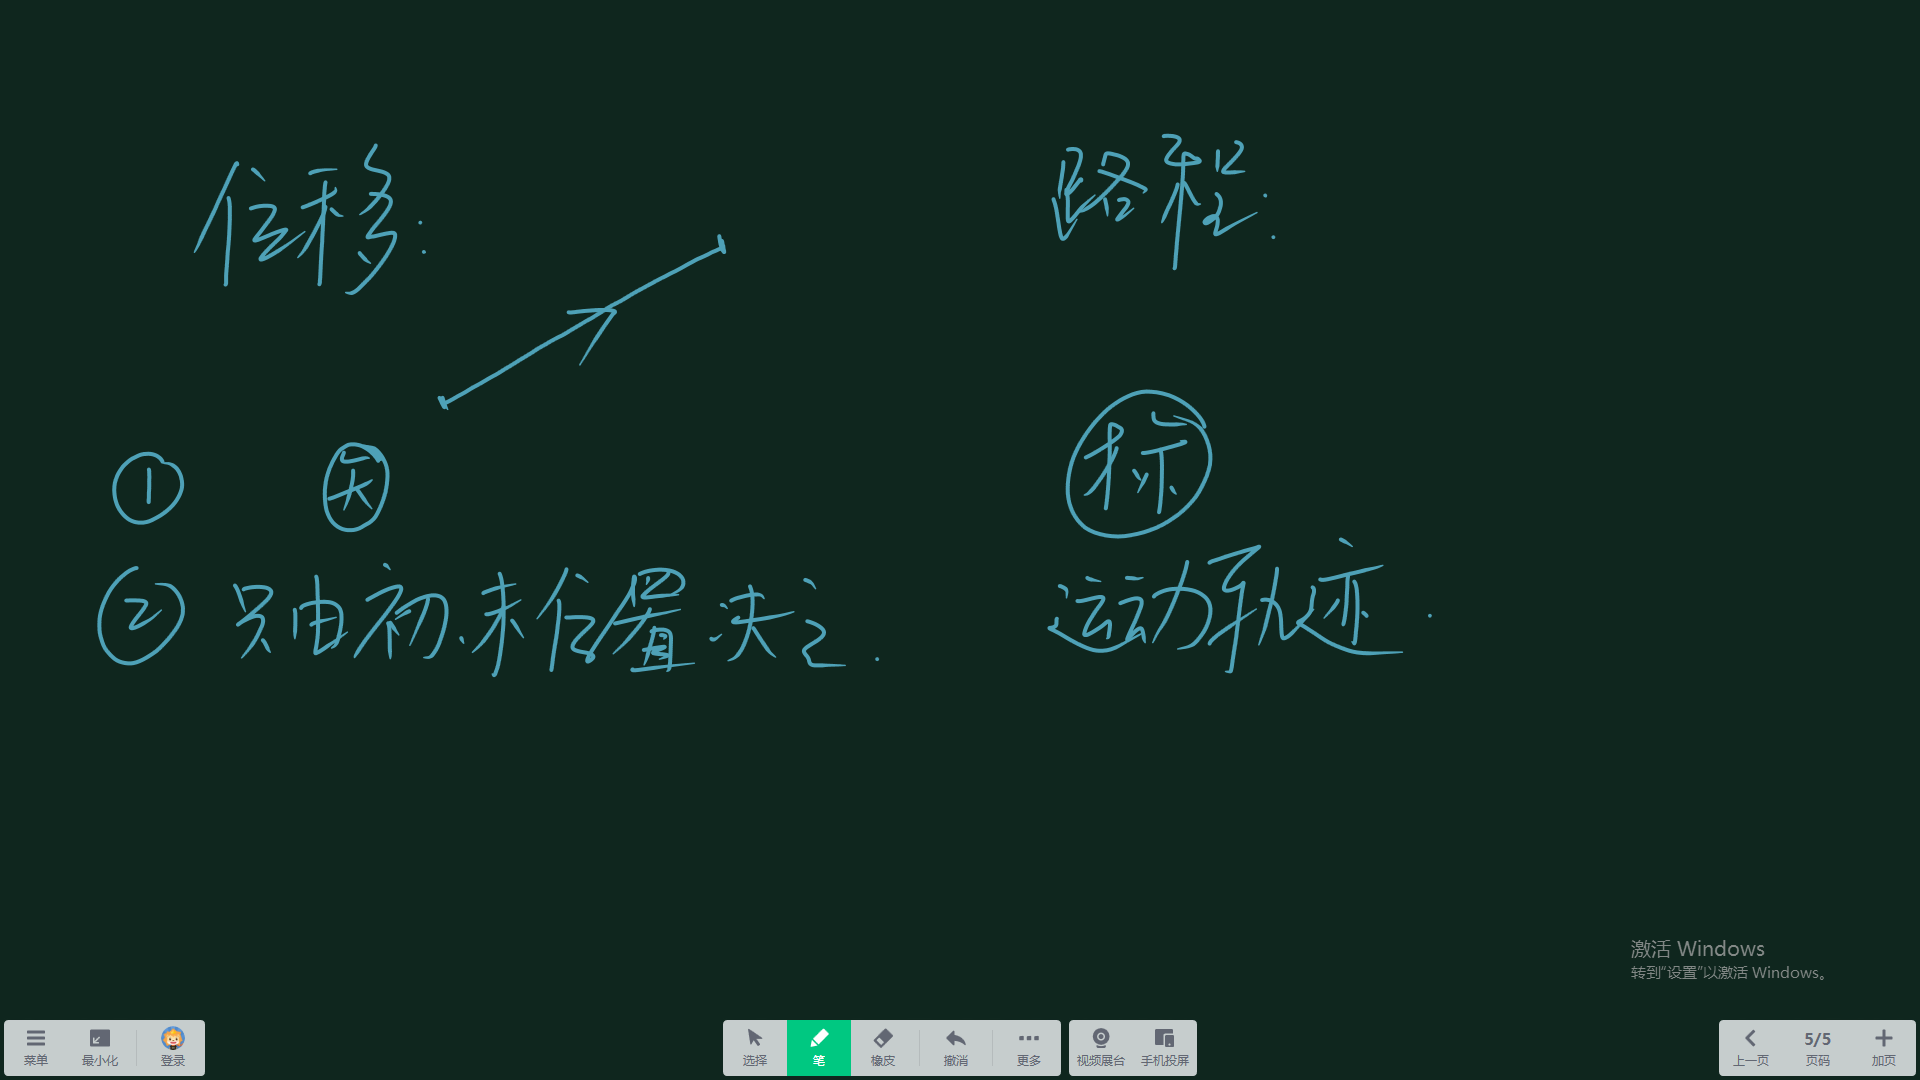 位移:
路程:
① 矢
标
② 只由初、末位置决定.
运动轨迹.
激活 Windows
转到“设置”以激活 Windows。
菜单 最小化 登录 选择 笔 橡皮 撤消 更多 视频展台 手机投屏 上一页 5/5 页码 加页